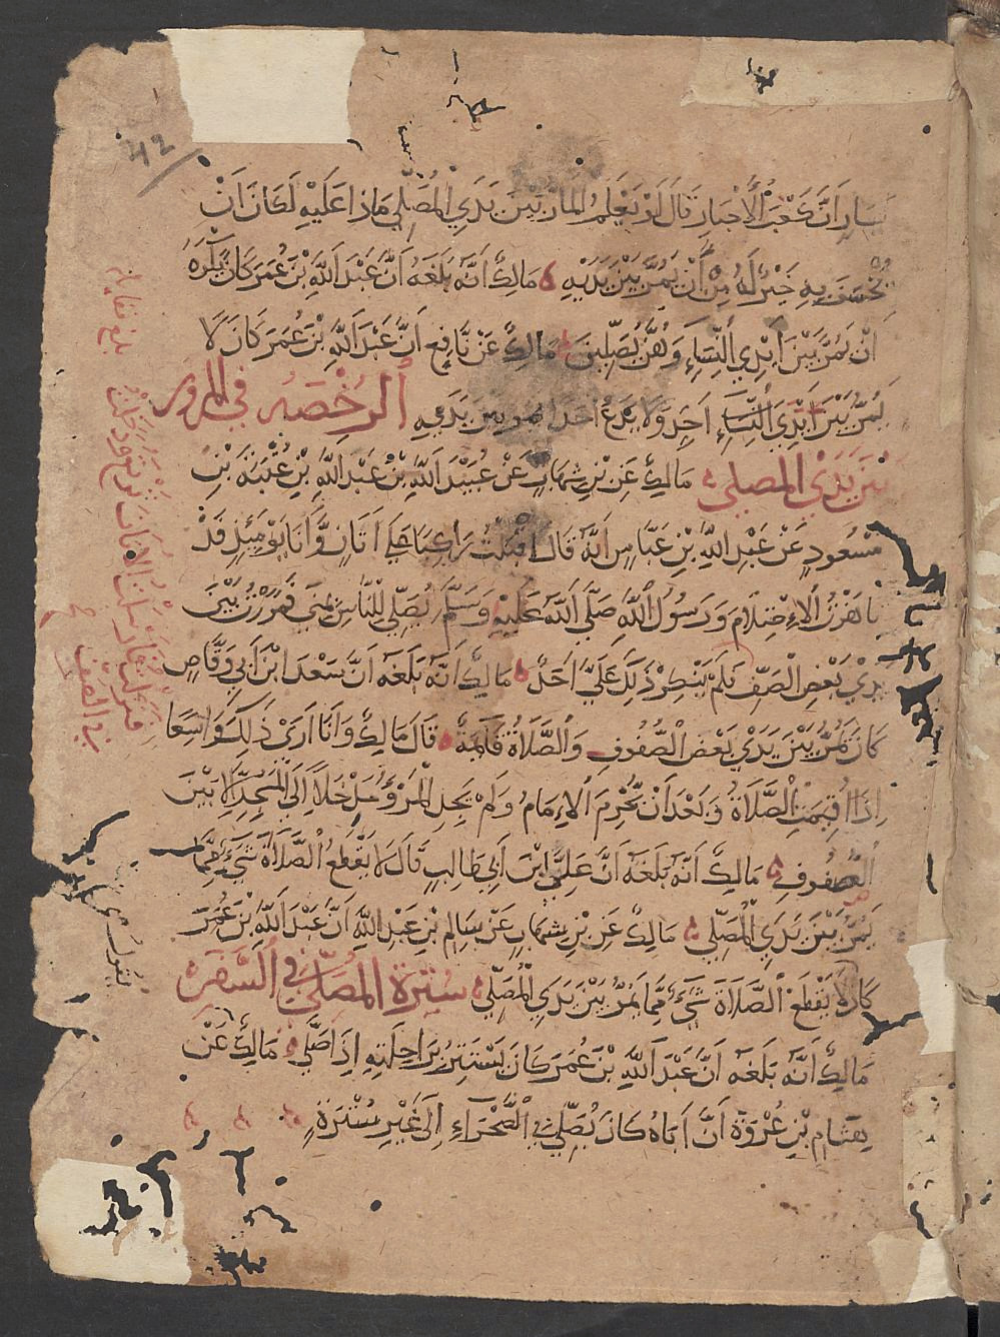 يَسَارٍ أَنَّ كَعْبَ الْأَحْبَارِ قَالَ لَوْ يَعْلَمُ الْمَارُّ بَيْنَ يَدَيِ الْمُصَلِّي مَاذَا عَلَيْهِ لَكَانَ أَنْ
يُخْسَفَ بِهِ خَيْرٌ لَهُ مِنْ أَنْ يَمُرَّ بَيْنَ يَدَيْهِ ٥ مَالِكٌ أَنَّهُ بَلَغَهُ أَنَّ عَبْدَ اللَّهِ بْنَ عُمَرَ كَانَ يَكْرَهُ
أَنْ يَمُرَّ بَيْنَ أَيْدِي النِّسَاءِ وَهُنَّ يُصَلِّينَ ٥ مَالِكٌ عَنْ نَافِعٍ أَنَّ عَبْدَ اللَّهِ بْنَ عُمَرَ كَانَ لَا
يَمُرُّ بَيْنَ أَيْدِي النِّسَاءِ أَحَدٍ وَلَا يَدَعُ أَحَدًا يَمُرُّ بَيْنَ يَدَيْهِ الرُّخْصَةُ فِي الْمُرُورِ
بَيْنَ يَدَيِ الْمُصَلِّي ٥ مَالِكٌ عَنِ بْنِ شِهَابٍ عَنْ عُبَيْدِ اللَّهِ بْنِ عَبْدِ اللَّهِ بْنِ عُتْبَةَ بْنِ
مَسْعُودٍ عَنْ عَبْدِ اللَّهِ بْنِ عَبَّاسٍ أَنَّهُ قَالَ أَقْبَلْتُ رَاكِبًا عَلَى أَتَانٍ وَأَنَا يَوْمَئِذٍ قَدْ
نَاهَزْتُ الِاحْتِلَامَ وَرَسُولُ اللَّهِ صَلَّى اللَّهُ عَلَيْهِ وَسَلَّمَ يُصَلِّي لِلنَّاسِ بِمِنًى فَمَرَرْتُ بَيْنَ
يَدَيْ بَعْضِ الصَّفِّ فَلَمْ يُنْكِرْ ذَلِكَ عَلَيَّ أَحَدٌ ٥ مَالِكٌ أَنَّهُ بَلَغَهُ أَنَّ سَعْدَ ابْنَ أَبِي وَقَّاصٍ
كَانَ يَمُرُّ بَيْنَ يَدَيْ بَعْضِ الصُّفُوفِ وَالصَّلَاةُ قَائِمَةٌ ٥ قَالَ مَالِكٌ وَأَنَا أَرَى ذَلِكَ وَاسِعًا
إِذَا أُقِيمَتِ الصَّلَاةُ وَبَعْدَ أَنْ يُحْرِمَ الْإِمَامُ وَلَمْ يَجِدِ الْمَرْءُ مَدْخَلًا إِلَى الْمَسْجِدِ إِلَّا بَيْنَ
الصُّفُوفِ ٥ مَالِكٌ أَنَّهُ بَلَغَهُ أَنَّ عَلِيَّ ابْنَ أَبِي طَالِبٍ قَالَ لَا يَقْطَعُ الصَّلَاةَ شَيْءٌ مِمَّا
يَمُرُّ بَيْنَ يَدَيِ الْمُصَلِّي ٥ مَالِكٌ عَنِ بْنِ شِهَابٍ عَنْ سَالِمِ بْنِ عَبْدِ اللَّهِ أَنَّ عَبْدَ اللَّهِ بْنَ عُمَرَ
قَالَ لَا يَقْطَعُ الصَّلَاةَ شَيْءٌ مِمَّا يَمُرُّ بَيْنَ يَدَيِ الْمُصَلِّي ٥ سُتْرَةُ الْمُصَلِّي فِي السَّفَرِ ٥
مَالِكٌ أَنَّهُ بَلَغَهُ أَنَّ عَبْدَ اللَّهِ بْنَ عُمَرَ كَانَ يَسْتَتِرُ بِرَاحِلَتِهِ إِذَا صَلَّى ٥ مَالِكٌ عَنْ
هِشَامِ بْنِ عُرْوَةَ أَنَّ أَبَاهُ كَانَ يُصَلِّي فِي الصَّحْرَاءِ إِلَى غَيْرِ سُتْرَةٍ ٥ ٥ ٥
42